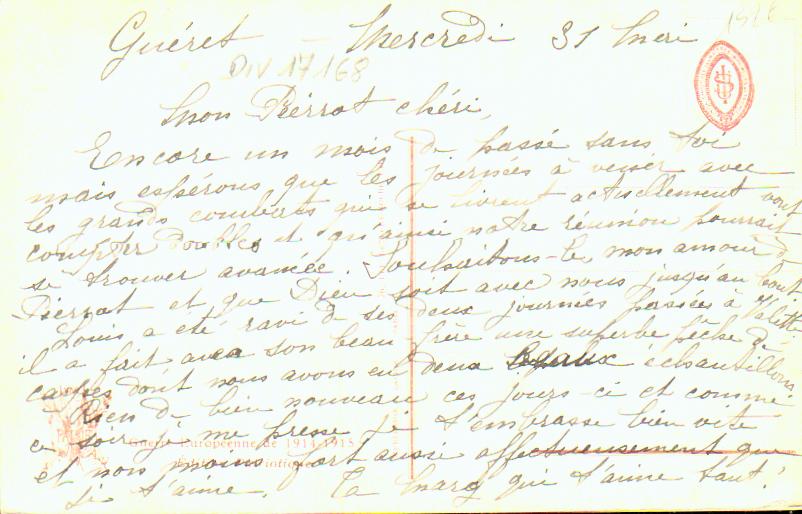 1926
Guéret – Mercredi 31 Mai
DIV 17 168
Mon Pierrot chéri,
Encore un mois de passé sans toi
mais espérons que les journées à venir avec
les grands combats qui se livrent actuellement vont
compter doubles et qu'ainsi notre réunion pourrait
se trouver avancée. Souhaitons-le, mon amour de
Pierrot et que Dieu soit avec nous jusqu'au bout
Louis a été ravi de ses deux journées passées à
il a fait avec son beau frère une superbe pêche de
carpes dont nous avons eu deux beaux échantillons
Rien de bien nouveau ces jours-ci et comme
ce soir je me presse je t'embrasse bien vite
Guerre Européenne de 1914-1915
et non moins fort aussi affectueusement que
je t'aime. Ta Marg qui t'aime tant!